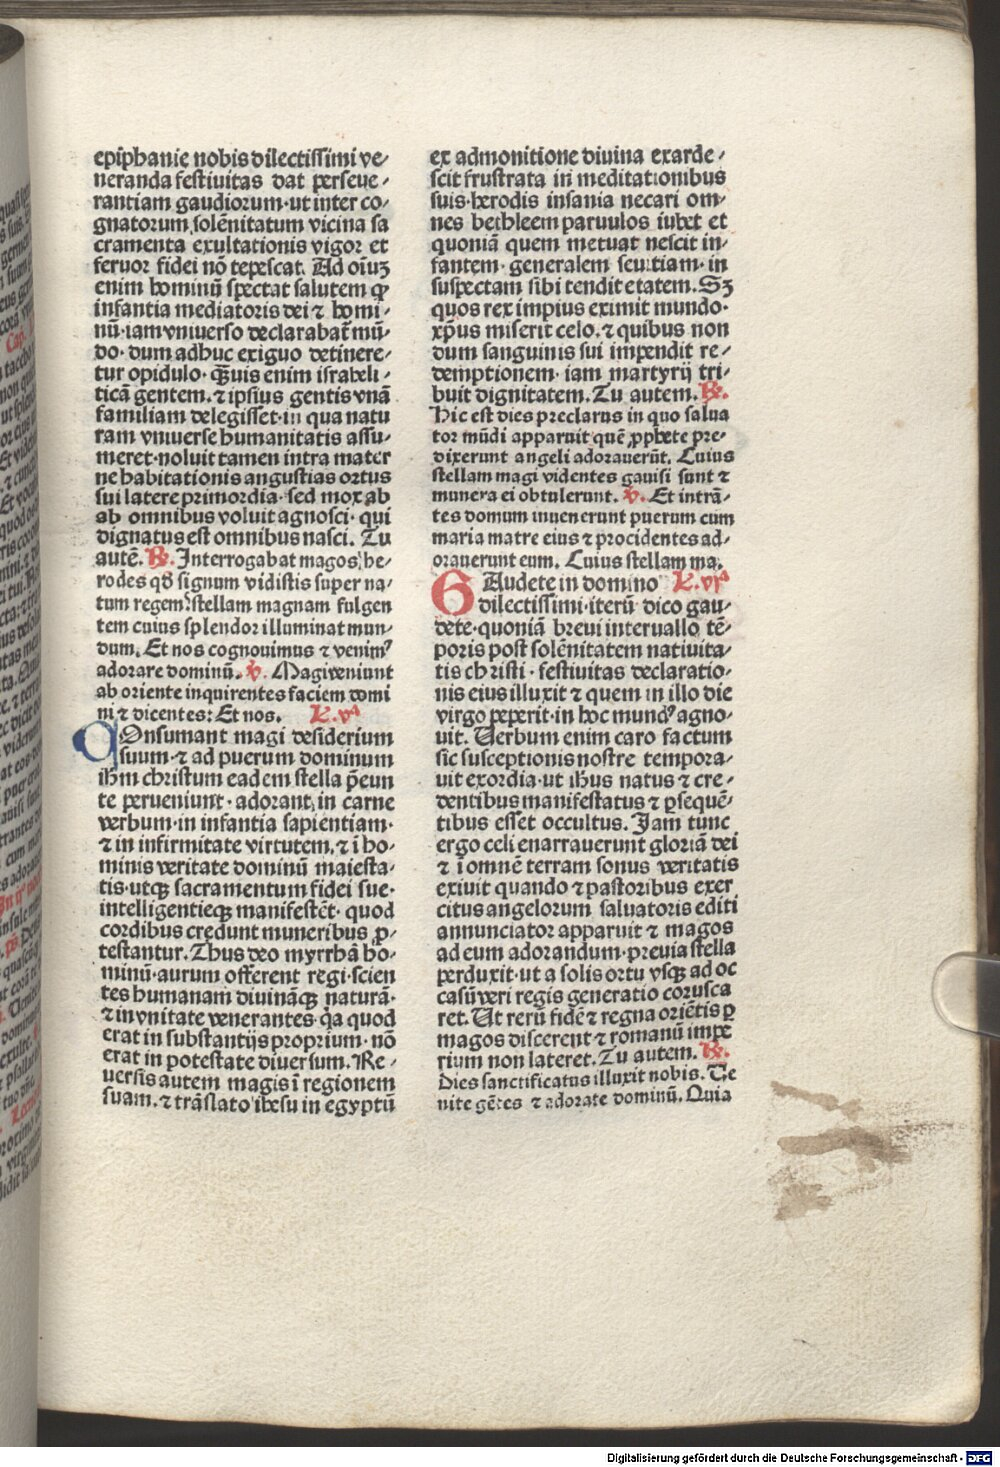 epiphanie nobis dilectissimi ve/
neranda festivitas dat perseve/
rantiam gaudiorum·ut inter co/
gnatorum solēnitatum vicina sa
cramenta exultationis vigor et
fervor fidei nō tepescat. Ad oīuʒ
enim hominū spectat salutem ꝙ
infantia mediatoris dei ⁊ homi/
nū·iam vniverso declarabat̄ mū/
do·dum adhuc exiguo detinere/
tur opidulo·q̄uis enim israheli/
ticā gentem.⁊ ipsius gentis vnā
familiam delegisset·in qua natu
ram vniverse humanitatis assu/
meret·noluit tamen intra mater
ne habitationis angustias ortus
sui latere primordia·sed mox ab
ab omnibus voluit agnosci·qui
dignatus est omnibus nasci. Tu
autē. ℟. Interrogabat magos he/
rodes qd̄ signum vidistis super na/
tum regem stellam magnam fulgen
tem cuius splendor illuminat mun/
dum. Et nos cognovimus ⁊ venimꝰ
adorare dominū. ℣. Magi veniunt
ab oriente inquirentes faciem domi
ni ⁊ dicentes: Et nos. L.v
Consumant magi desiderium
suum·⁊ ad puerum dominum
ihm christum eadem stella p̄eun
te perveniunt·adorant in carne
verbum·in infantia sapientiam·
⁊ in infirmitate virtutem.⁊ ī ho/
minis veritate dominū maiesta/
tis·utqꝫ sacramentum fidei sue·
intelligentieqꝫ manifestēt·quod
cordibus credunt muneribus ꝓ/
testantur. Thus deo myrrhā ho/
minū·aurum offerent regi·scien
tes humanam divināqꝫ naturā·
⁊ in vnitate venerantes·q̇a quod
erat in substantijs proprium·nō
erat in potestate diversum. Re/
versis autem magis ī regionem
suam.⁊ trāslato ihesu in egyptū
ex admonitione divina exarde/
scit frustrata in meditationibus
suis·herodis insania necari om/
nes bethleem parvulos iubet et
quoniā quem metuat nescit in/
fantem·generalem sevitiam·in
suspectam sibi tendit etatem. Sʒ
quos rex impius eximit mundo·
xp̄us miserit celo.⁊ quibus non
dum sanguinis sui impendit re/
demptionem·iam martyrij tri/
buit dignitatem. Tu autem. ℟.
Hic est dies preclarus in quo salva
tor mūdi apparuit quē ꝓphete pre/
dixerunt angeli adoraverūt. Cuius
stellam magi videntes gavisi sunt ⁊
munera ei obtulerunt. ℣. Et intrā/
tes domum invenerunt puerum cum
maria matre eius ⁊ procidentes ad/
oraverunt eum. Cuius stellam ma.
GAudete in domino L.vi
dilectissimi·iterū dico gau/
dete·quoniā brevi intervallo tē/
poris post solēnitatem nativita/
tis christi·festivitas declaratio/
nis eius illuxit ⁊ quem in illo die
virgo peperit·in hoc mundꝰ agno/
vit. Verbum enim caro factum
sic susceptionis nostre tempora/
vit exordia·ut ihus natus ⁊ cre/
dentibus manifestatus ⁊ ꝑsequē/
tibus esset occultus. Jam tunc
ergo celi enarraverunt gloriā dei
⁊ ī omnē terram sonus veritatis
exivit quando ⁊ pastoribus exer
citus angelorum salvatoris editi
annunciator apparuit ⁊ magos
ad eum adorandum·previa stella
perduxit·ut a solis ortu vsqꝫ ad oc
casū veri regis generatio corusca
ret. Ut rerū fidē ⁊ regna oriētis ꝑ
magos discerent·⁊ romanū impe
rium non lateret. Tu autem. ℟.
Dies sanctificatus illuxit nobis. Ve
nite gētes ⁊ adorate dominū. Quia
Digitalisierung gefördert durch die Deutsche Forschungsgemeinschaft - DFG